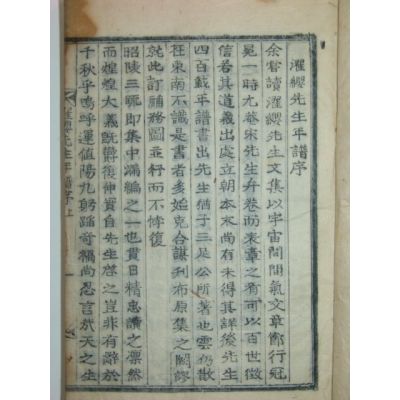 濯纓先生年譜序
余嘗讀濯纓先生文集以宇宙間間氣文章節行冠
冕一時尤菴宋先生弁卷而表章之有可以百世徵
信若其道義出處立朝本末尚有未得其詳後先生
四百載年譜書出先生猶子三足公所著也雲仍散
在東南不識是書者多始克合謀刋布原集之闕謬
就此訂補務圖並行而不悖復
昭陵三疏卽集中漏編之一也貫日精忠讀之凜然
而煌煌大義旣鬱復伸實自先生啓之豈非有辭於
千秋乎嗚呼運値陽九躬蹈奇禍尚忍言哉天之生
濯纓先生年譜序上